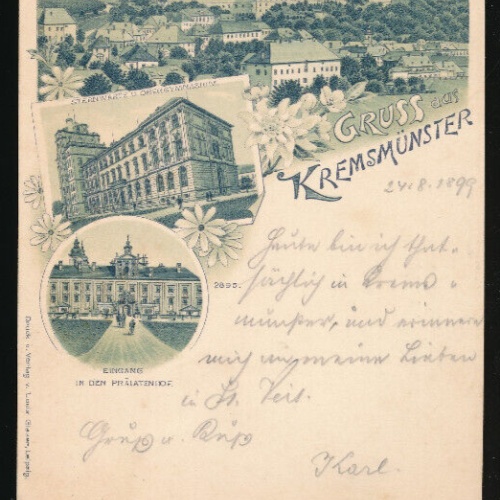 STERNWARTE U. OBERGYMNASIUM
GRUSS aus
KREMSMÜNSTER
24.8.1899
Heute bin ich that-
sächlich in Krems-
2695.
münster, und erinnere
mich an meine Lieben
EINGANG
IN DEN PRÄLATENHOF.
in St. Veit.
Gruß u. Kuß
Karl.
Druck u. Verlag v. Louis Glaser, Leipzig.